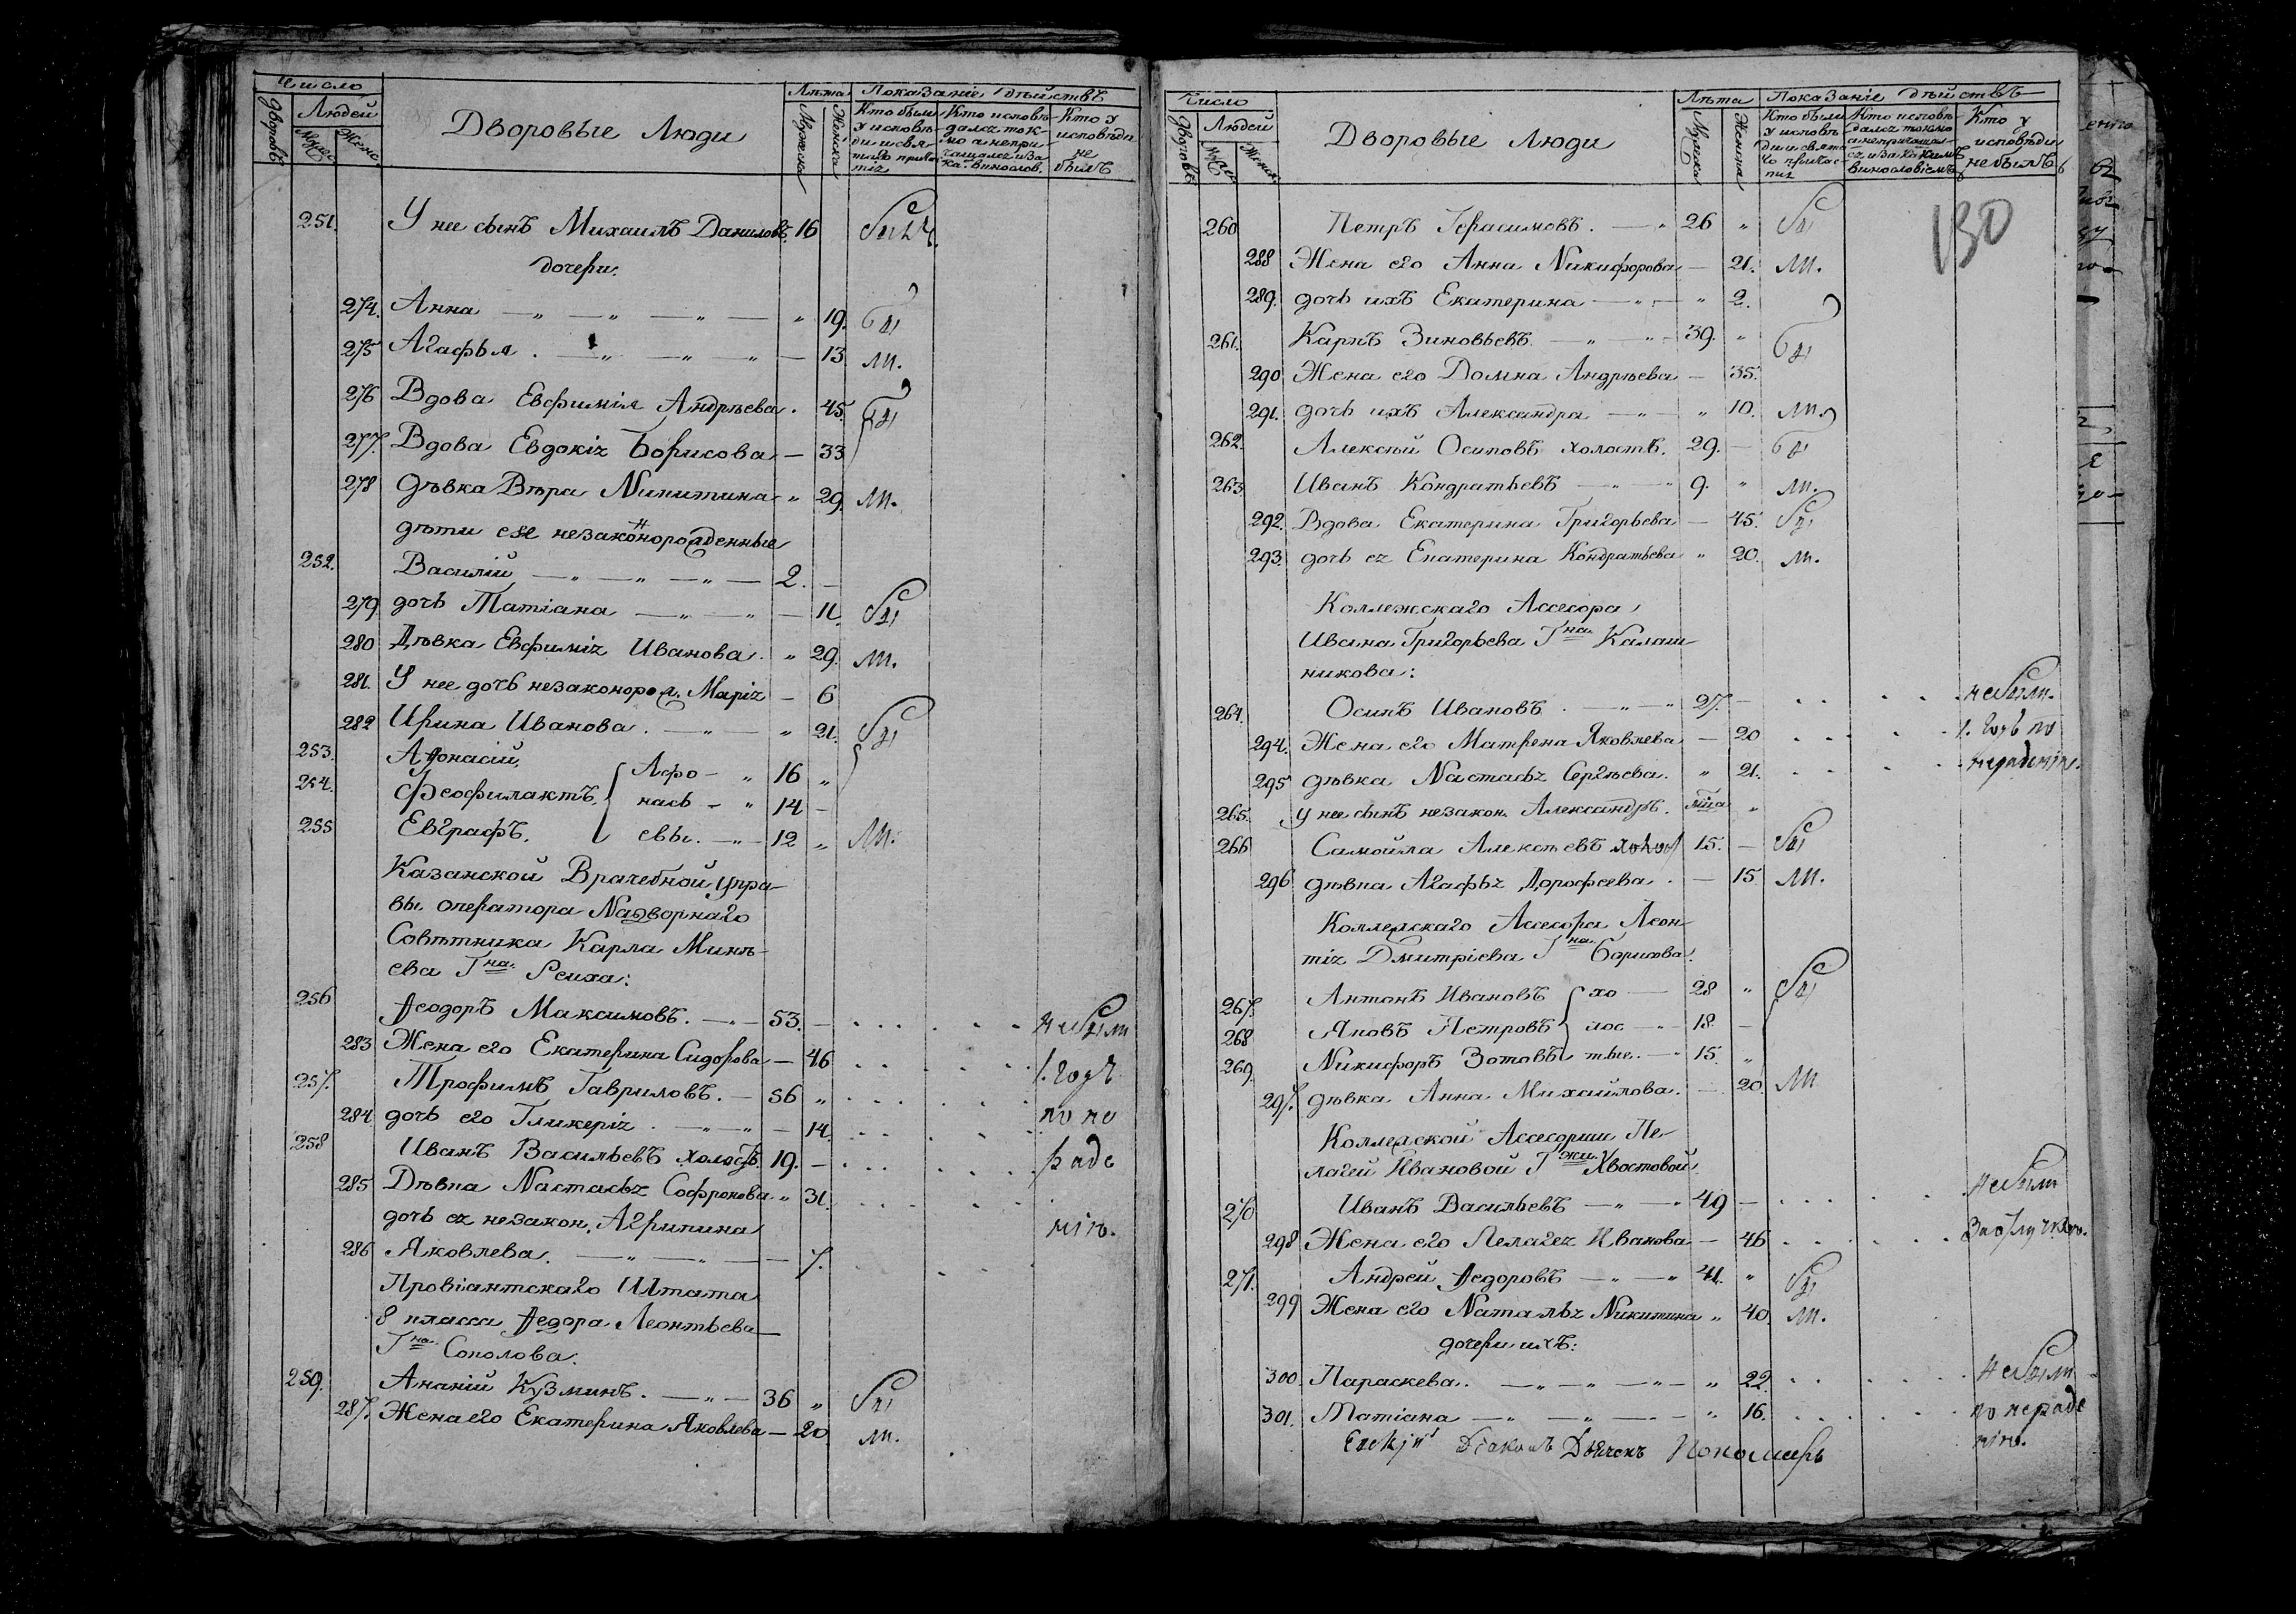 Число
Дворовъ
Людей
Мужес.
Женс.
Дворовые Люди
Лѣта
Мужеска
Женска
Показаніе дѣйствъ
Кто были
у исповѣ-
ди и свя-
тыхъ прича-
тіи
Кто исповѣ-
дался ток-
мо а непри-
чащался и за
ка: винослов.
Кто у
исповѣди
не
былъ
251. У нее сынъ Михаилъ Даниловъ. 16 Былъ.
дочери:
274. Анна — „ — „ — „ — „ 19. бы
275 Агафья. — „ — „ „ — 13 ли.
276 Вдова Евфимія Андрѣева. 45. бы
277. Вдова Евдокія Борисова — 33
278 Дѣвка Вѣра Никитина „ 29. ли.
дѣти ее незаконорожденные
252. Василій — „ — „ — „ — 2. —
279 дочь Татіана — „ — „ — 11. бы
280 Дѣвка Евфимія Иванова. „ 29. ли.
281. У нее дочь незаконорож. Марія — 6
282 Ирина Иванова. — „ — „ 21. бы
253. Афонасій, Афо- „ 16 „
254. Феофилактъ, нась- „ 14 —
255 Евграфъ. евы. — „ — 12 „ ли.
Казанской Врачебной Упра-
вы оператора Надворнаго
Совѣтника Карла Минѣ-
ева Гна. Реиха:
256 Федоръ Максимовъ. — „ — 53. — небыли
283 Жена его Екатерина Сидорова — 46 1. годъ
257. Трофимъ Гавриловъ. — 56 „ по не
284 дочь его Гликерія. — „ — „ — 14.
258 Иванъ Васильевъ холостъ. 19. — раде
285 Дѣвка Настасья Софронова „ 31.
дочь ея незакон. Агрипина нію.
286 Яковлева. — „ — „ — 7.
Провіантскаго Штата
8 класса Федора Леонтьева
Гна Соколова.
259. Ананій Кузминъ. — „ — 36 „ бы
287. Жена его Екатерина Яковлева — 20. ли.
Число
Дворовъ
Людей
Женск.
Дворовые Люди
Лѣта
Мужеска
Женска
Показаніе дѣйствъ
Кто были
у исповѣ
ди и свята
го причас-
тія
Кто исповѣ
дался токмо
а непричащал-
ся и за какимъ
винословіемъ
Кто у
исповѣди
не былъ
130
260 Петръ Герасимовъ. — „ 26 „ бы
288 Жена его Анна Никифорова — 21. ли.
289. дочь ихъ Екатерина — „ — „ 2.
261. Карпъ Зиновьевъ — „ — „ 39. „ бы
290 Жена его Домна Андрѣева — 35.
291. дочь ихъ Александра — „ — „ 10. ли.
262. Алексѣй Осиповъ холостъ. 29. — бы
263 Иванъ Кондратьевъ — „ — „ 9. „ ли.
292. Вдова Екатерина Григорьева — 45. бы
293. дочь ея Екатерина Кондратьева „ 20. ли.
Коллежскаго Ассесора
Ивана Григорьева Гна Калаш
никова:
264. Осипъ Ивановъ. — „ — „ 27. — небыли.
294. Жена его Матрена Яковлева — 20 1. годъ по
295 дѣвка Настасья Сергѣева. „ 21. нерадѣнію.
265. у нее сынъ незакон. Александръ. „
266 Самойла Алексѣевъ холос 15. — бы
296 дѣвка Агафья Дорофеева. — 15. ли.
Коллежскаго Ассесора Леон-
тія Дмитріева Гна Борисова.
267. Антонъ Ивановъ хо — 28 „ бы
268 Яковъ Петровъ лос — „ 18. —
269. Никифоръ Зотовъ тые. — „ 15. „
297. дѣвка Анна Михайлова. — 20. ли
Коллежской Ассесорши Пе-
лагеи Ивановой Гжи Хвостовой
270 Иванъ Васильевъ — „ — „ 49 — небыли
298 Жена его Пелагея Иванова — 46 За отлучкою.
271. Андрей Федоровъ — „ — „ 41. „ бы
299 Жена его Наталья Никитина „ 40. ли.
дочери ихъ:
300. Параскева. — „ — „ — „ — „ 22. небыли
301. Татіана — „ — „ — „ — „ 16. по нераде
нію.
Діаконъ Дьячекъ Пономарь